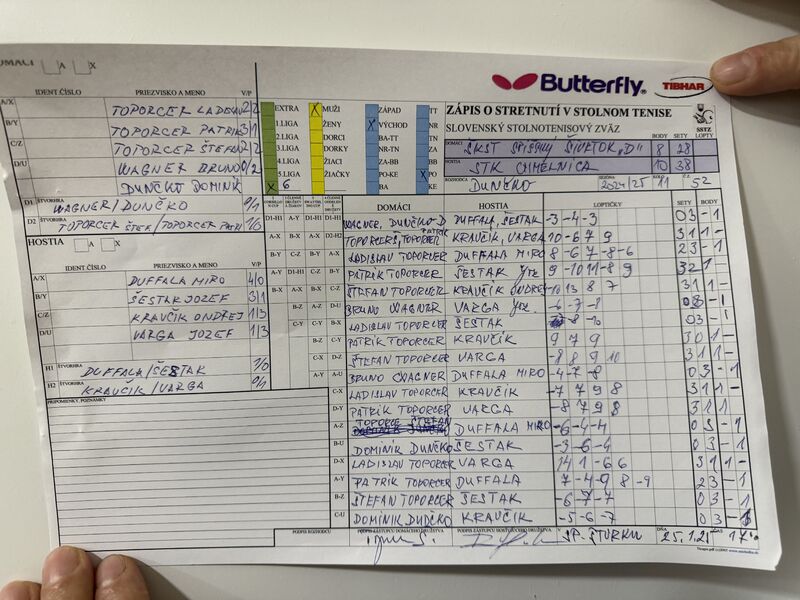 DOMÁCI A X
IDENT.ČÍSLO PRIEZVISKO A MENO V/P
A/X TOPORCER LADISLAV 2/2
B/Y TOPORCER PATRIK 3/1
C/Z TOPORCER ŠTEFAN 2/2
D/U WAGNER BRUNO 0/2
DUNČKO DOMINIK
D1 ŠTVORHRA WAGNER/DUNČKO 0/1
D2 ŠTVORHRA TOPORCER ŠTEF/TOPORCER PATRI 1/0
HOSTIA A X
IDENT ČÍSLO PRIEZVISKO A MENO V/P
A/X DUFFALA MIRO 4/0
B/Y ŠESTAK JOZEF 3/1
C/Z KRAVČIK ONDŘEJ 1/3
D/U VARGA JOZEF 1/3
H1 ŠTVORHRA DUFFALA/ŠESTAK 1/0
H2 ŠTVORHRA KRAVČIK/VARGA 0/1
PRIPOMIENKY, POZNÁMKY
EXTRA X MUŽI ZÁPAD TT
1.LIGA ŽENY X VÝCHOD NR
2.LIGA DORCI BA-TT TN
3.LIGA DORKY NR-TN ZA
4.LIGA ŽIACI ZA-BB BB
5.LIGA ŽIAČKY PO-KE X PO
X 6 BA KE
Butterfly TIBHAR
ZÁPIS O STRETNUTÍ V STOLNOM TENISE
SLOVENSKÝ STOLNOTENISOVÝ ZVÄZ SSTZ
DOMÁCI ŠKST SPIŠSKÝ ŠTVRTOK „D" BODY 8 SETY 28 LOPTY
HOSTIA STK CHMELNICA 10 38
ROZHODCA DUNČKO SEZÓNA 2024/25 KOLO 11 Č.Z. 52
DOMÁCI HOSTIA LOPTIČKY SETY BODY
D1-H1 A-Y D1-H1 D1-H1 WAGNER, DUNČKO D DUFFALA, ŠESTAK -3 -4 -3 03 -1
A-X B-X A-X D2-H2 TOPORCER Š, TOPORCER PATRIK KRAVČIK, VARGA 10 -6 7 9 31 1-
B-Y C-Z B-Y A-X LADISLAV TOPORCER DUFFALA MIRO -8 -6 7 -8 -6
A-Y D1-H1 C-Z B-Y PATRIK TOPORCER ŠESTAK 9 -10 11 -8 9 32 1
B-X A-X A-Y C-Z ŠTEFAN TOPORCER KRAVČIK ONDREJ 10 13 8 7 31
B-Z A-Z D-U BRUNO WAGNER VARGA -6 -7 -8 03 -1
C-Y C-Y B-X LADISLAV TOPORCER ŠESTAK 03 -1
B-Z C-Y PATRIK TOPORCER KRAVČIK 9 7 9 30 1-
C-X D-Z ŠTEFAN TOPORCER VARGA -8 8 9 10 31 1-
A-Y A-U BRUNO WAGNER DUFFALA MIRO -4 -7 -8 03 -1
C-X LADISLAV TOPORCER KRAVČIK -7 7 9 8 31 1-
D-Y PATRIK TOPORCER VARGA -8 7 8 9 31 1
A-Z TOPORCE ŠTEFAN DUFFALA MIRO -6 -4 -4 03 -1
B-U DOMINIK DUNČKO ŠESTAK -3 -6 -4 03 -1
D-X LADISLAV TOPORCER VARGA 14 1 -6 6 31 1-
A-Y PATRIK TOPORCER DUFFALA 7 -4 -9 8 -9 23 -1
B-Z ŠTEFAN TOPORCER ŠESTAK -6 -7 -7 03 -1
C-U DOMINIK DUNČKO KRAVČIK -5 -6 -7 03 -1
PODPIS ROZHODCU PODPIS ZÁSTUPCU DOMÁCEHO DRUŽSTVA PODPIS ZÁSTUPCU HOSŤUJÚCEHO DRUŽSTVA V SP. ŠTVRTKU DŇA 25.1.25 ČAS 17